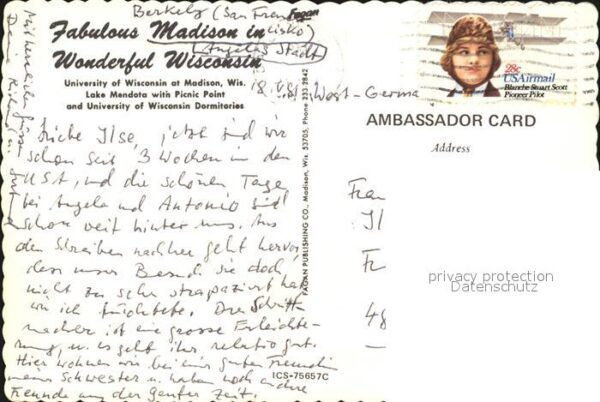 Berkely (San Fran
cisko)
Fabulous Madison in
Wonderful Wisconsin
Angelas Stadt
University of Wisconsin at Madison, Wis.
Lake Mendota with Picnic Point
and University of Wisconsin Dormitories
18. West-Germa
28c
USAirmail
Blanche Stuart Scott
Pioneer Pilot
AMBASSADOR CARD
Address
Ilse, jetzt sind wir
schon seit 3 Wochen in den
USA, und die schönen Tage
bei Angela und Antonio sind
schon weit hinter uns. Aus
den Schreiben nachher geht hervor,
dass unser Besuch sie doch
nicht zu sehr strapaziert hat
wie ich fürchtete. Der Schritt-
macher ist eine grosse Erleichte-
rung, u. es geht ihr relativ gut.
Hier wohnen wir bei einer guten Freundin
meiner Schwester u. haben noch andere
Freunde aus der ganzen Zeit.
Fagan
FAGAN PUBLISHING CO., Madison, Wis. 53705, Phone 233-2842
ICS-75657C
Frau
Il
Fr
48
privacy protection
Datenschutz